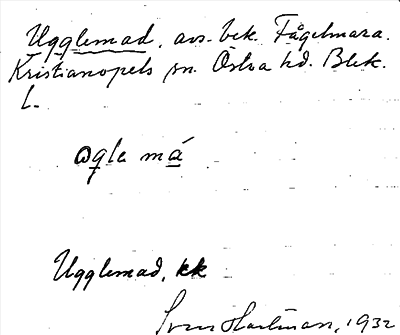 Ugglemad, avs. bek. Fågelmara.
Kristianopels sn. Östra hd. Blek.
L.
ogle má
Ugglemad, kk
Sven Hartman, 1932